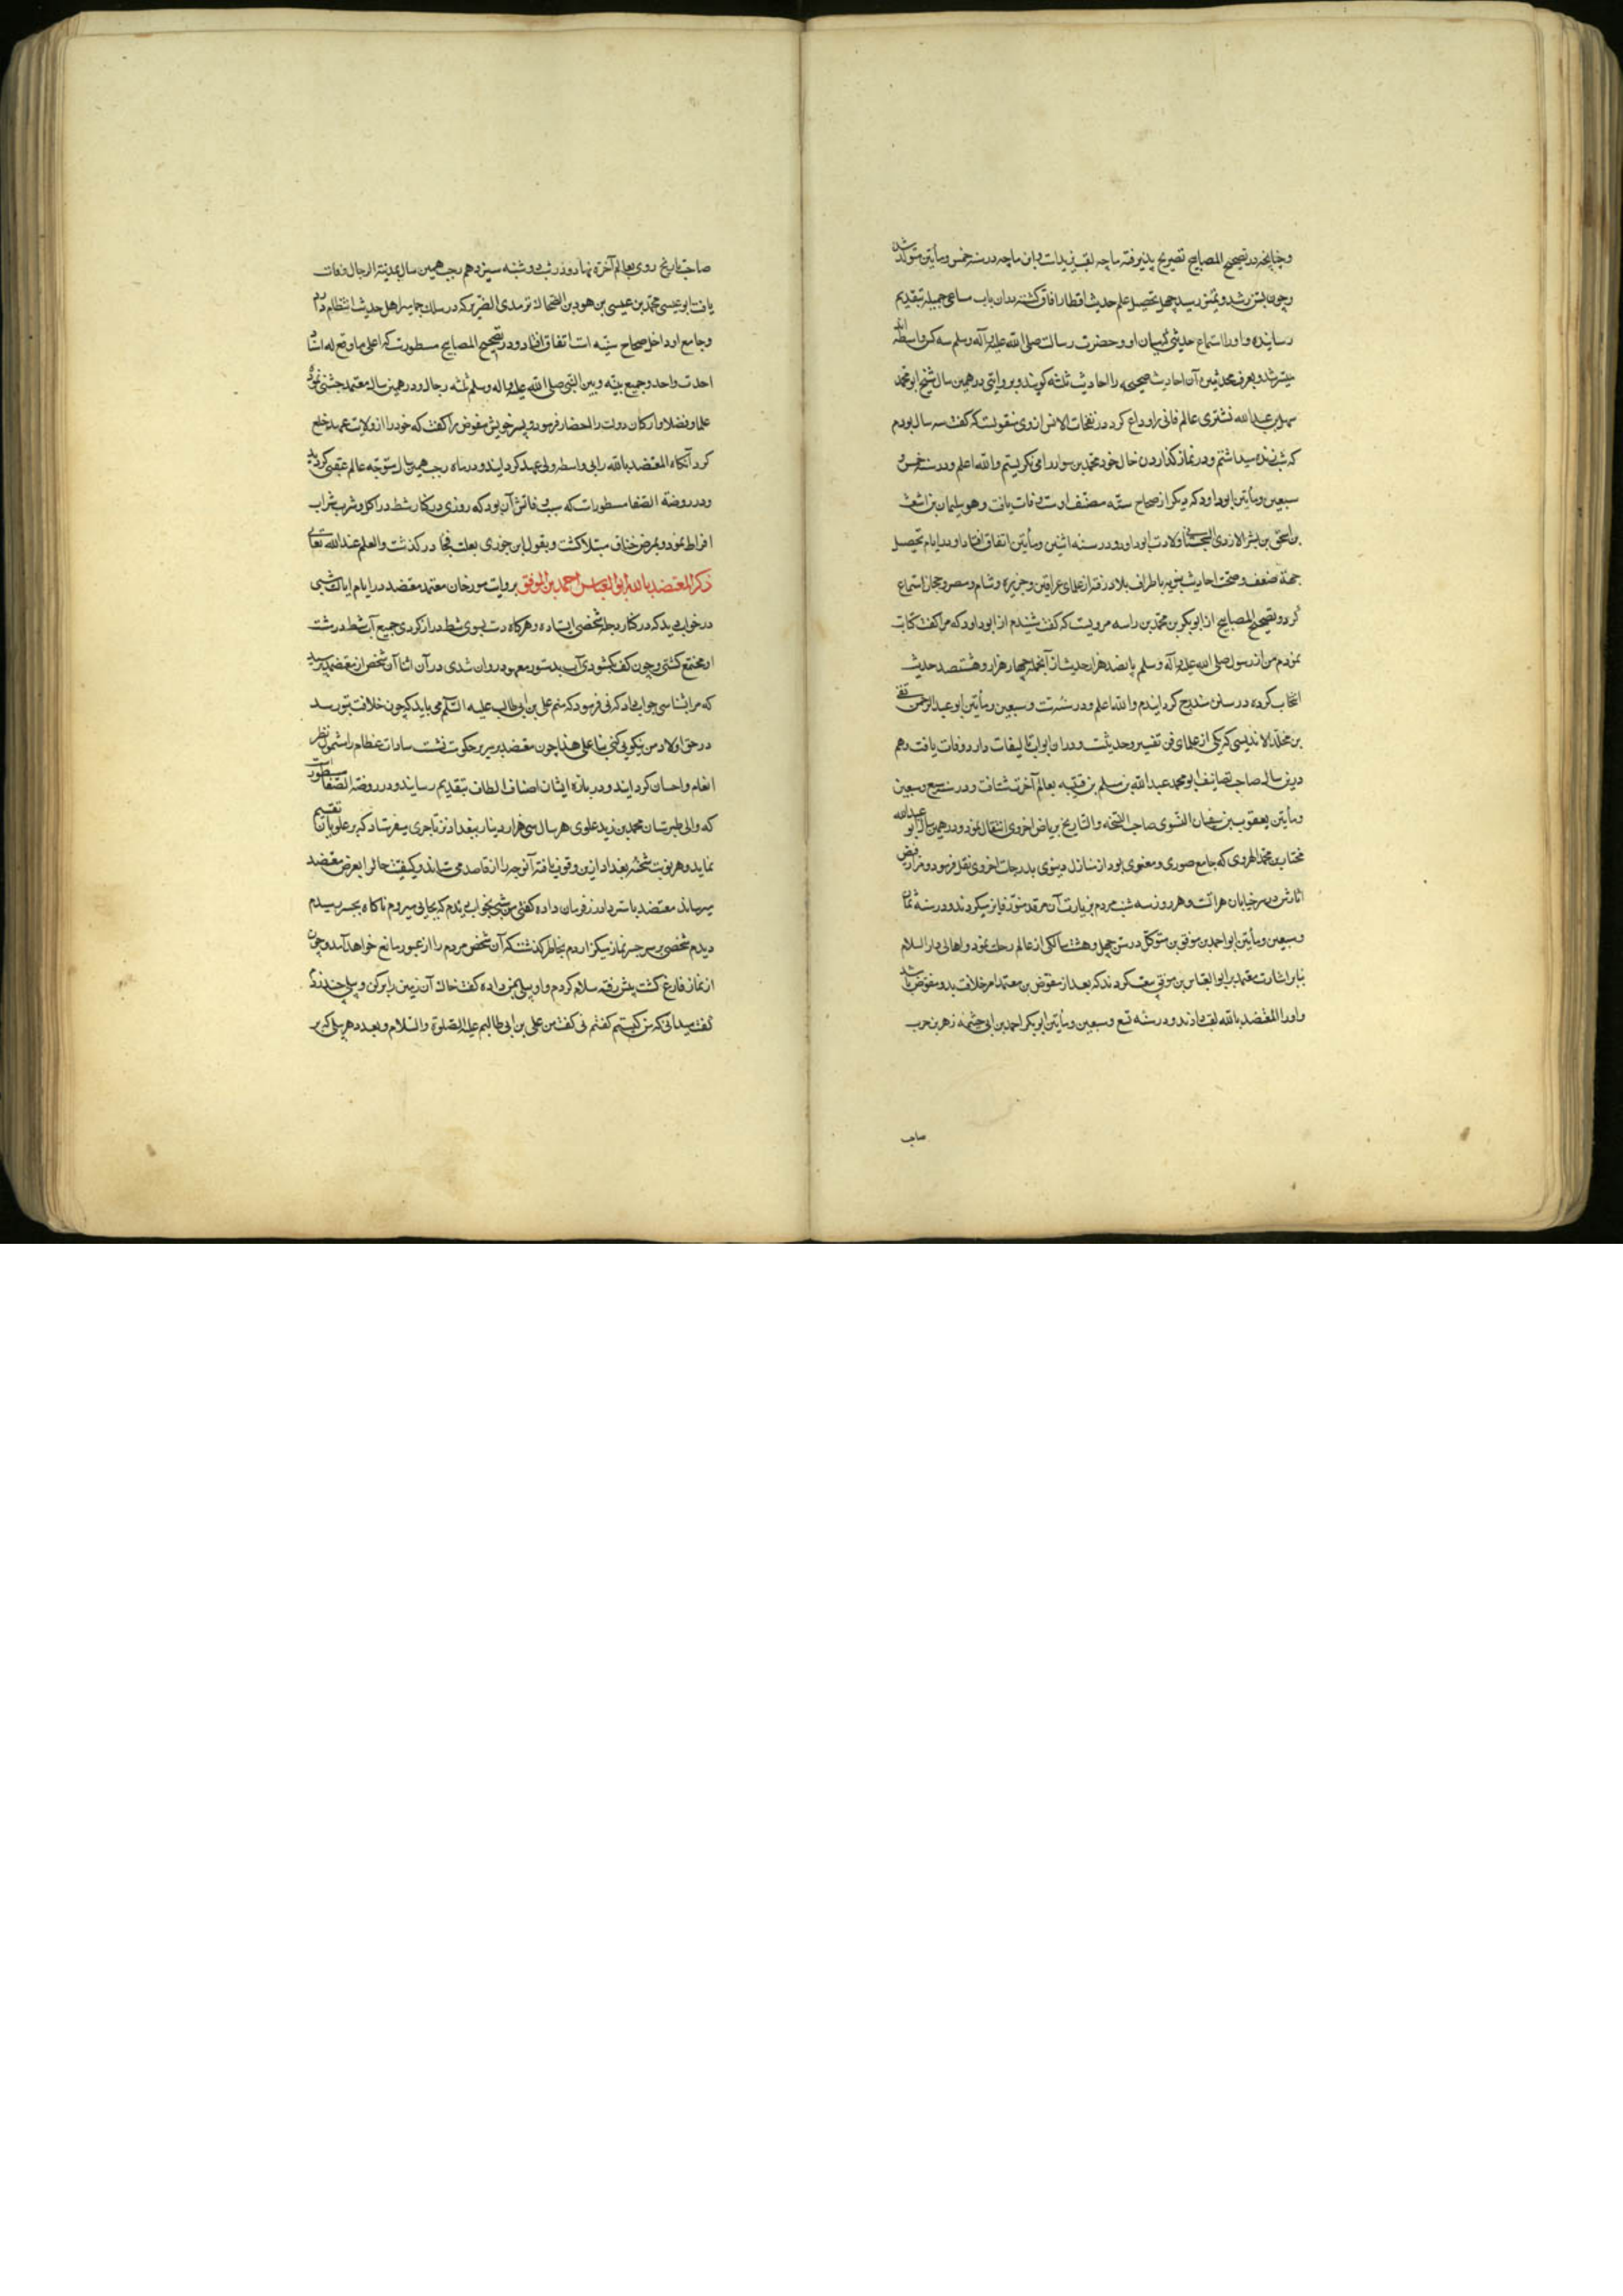 و چنانچه در تصحیح المصابیح تصریح پذیرفته ماجه لقب یزید است و ابن ماجه در سنه خمس و مأتین متولد شد
و چون بسن رشد و تمیز رسید جهة تحصیل علم حدیث اقطار آفاق کشته بدان باب مساعی جمیله بتقدیم
رسانیده و او را استماع حدیثی که میان او و حضرت رسالت صلی الله علیه و آله وسلم سه کس واسطه اند
میسر شد و بعرف محدثین آن احادیث صحیحه را احادیث ثلثه کویند و بروایتی در همین سال شیخ ابو محمد
سهل بن عبدالله تشتری عالم فانی را وداع کرد در نفحات الانس از وی منقولست که کفت سه ساله بودم
که شب زنده میداشتم و در نماز کذاردن خال خود محمد بن سوار را می نکریستم والله اعلم و در سنه خمس و
سبعین و مأتین ابو داود که یکی از صحاح سته مصنف اوست وفات یافت و هو سلیمان بن اشعث
بن اسحق بن بشر الازدی السجستانی ولادت ابو داود در سنه اثنین و مأتین اتفاق افتاد و در ایام تحصیل
جهة ضعف و صحت احادیث نبویه باطراف بلاد رفته از علمای عراقین و جزیره و شام و مصر و حجاز استماع
کرد و در تصحیح المصابیح از ابو بکر بن محمد بن راسه مرویست که کفت شنیدم از ابو داود که مرا کفت کتابت
نمودم من از رسول صلی الله علیه و آله وسلم پانصد هزار حدیث از آنجمله چهار هزار و هشتصد حدیث
انتخاب کرده در سنن مندرج کردانیدم والله اعلم و در سنه ست و سبعین و مأتین ابو عبدالرحمن تقی
بن مخلد الاندلیسی که یکی از علمای فن تفسیر و حدیثست و در آن ابواب تالیفات دارد وفات یافت و هم
درین سال صاحب تصانیف ابو محمد عبدالله بن مسلم بن قتیبه بعالم آخرت شتافت و در سنه سبع و سبعین
و مأتین یعقوب بن سفیان النسوی صاحب النسخه و التاریخ بریاض اخروی انتقال نمود و در همین سال ابو عبدالله
مختار بن محمد الهروی که جامع صوری و معنوی بود از منازل دنیوی بدرجات اخروی نقل فرمود و مزار فیض
آثارش در سر خیابان هراتست و هر روز سه شنبه مردم بزیارت آن مرقد منور فایز میکردند و در سنه ثمان
و سبعین و مأتین ابو احمد بن موفق بن متوکل در سن چهل و هشت سالکی از عالم رحلت نمود و اهالی دار السلام
بنابر اشارت معتمد بر ابو العباس بن موفق بیعت کردند که بعد از مفوض بن معتمد امر خلافت بدو مفوض باشد
و او را المعتضد بالله لقب دادند و در سنه تسع و سبعین و مأتین ابو بکر احمد بن ابی خثیمه زهیر بن حرب
صاحب
صاحب تاریخ روی بعالم آخرة نهاد و در شب دوشنبه سیزدهم رجب همین سال بمدینة الرجال وفات
یافت ابو عیسی محمد بن عیسی بن هود بن الضحاک ترمدی الضریر که در سلک جماهیر اهل حدیث انتظام دارد
و جامع او داخل صحاح سته است اتفاق افتاد و در تصحیح المصابیح مسطورست که اعلی ما وقع له اسناد
احدث واحد و جمیع بینه و بین النبی صلی الله علیه و اله وسلم ثلثه رجال و در همین سال معتمد جشنی نمود
علما و فضلا و ارکان دولت را احضار فرمود و پسر خویش مفوض را کفت که خود را از ولایت عهد خلع
کرد آنکاه المعتضد بالله را بی واسطه ولی عهد کردانید و در ماه رجب همین سال متوجه عالم عقبی کردید
و در روضة الصفا مسطور است که سبب وفاتش آن بود که روزی در کنار شط در اکل و شرب شراب
افراط نمود و بمرض خناق مبتلا کشت و بقول ابن جوزی بعلت فجا در کذشت و العلم عند الله تعالی
ذکر المعتضد بالله ابو العباس احمد بن الموفق بروایت مورخان معتمد معتضد در ایام ایالت شبی
در خواب دید که در کنار دجله شخصی ایستاده و هر کاه دست بسوی شط دراز کردی جمیع آب شط در مشت
او مجتمع کشتی و چون کف بکشودی آب بدستور معهود روان شدی در آن اثنا آن شخص از معتضد پرسید
که مرا شناسی جواب داد که نی فرمود که منم علی بن ابی طالب علیه السلام می باید که چون خلافت بتو رسد
در حق اولاد من نیکویی کنی بنا علی هذا چون معتضد بر سریر حکومت نشست سادات عظام را مشمول نظر
انعام و احسان کردانید و در باره ایشان اصناف الطاف بتقدیم رسانید و در روضة الصفا مسطور است
که والی طبرستان محمد بن زید علوی هر سال سی هزار دینار ببغداد نزد تاجری میفرستاد که بر علویان تقسیم
نماید و هر نوبت شحنه بغداد ازین وقوف یافته آنوجه را از قاصد می ستاند و کیفیت حال را بعرض معتضد
میرساند معتضد باسترداد زر فرمان داده کفتی من شبی بخواب دیدم که بجایی میروم ناکاه بجسر رسیدم
دیدم شخصی بر سر جسر نماز میکزارد بخاطر کذشت که آن شخص مردم را از عبور مانع خواهد آمد و چون
از نماز فارغ کشت پیش رفته سلام کردم و او بیلی بمن داده کفت خاک آن زمین را بر کن و بیلی چند زدم
کفت میدانی که من کیستم کفتم نی کفت من علی بن ابی طالبم علیه الصلوة و السلام و بعدد هر بیلی که بر